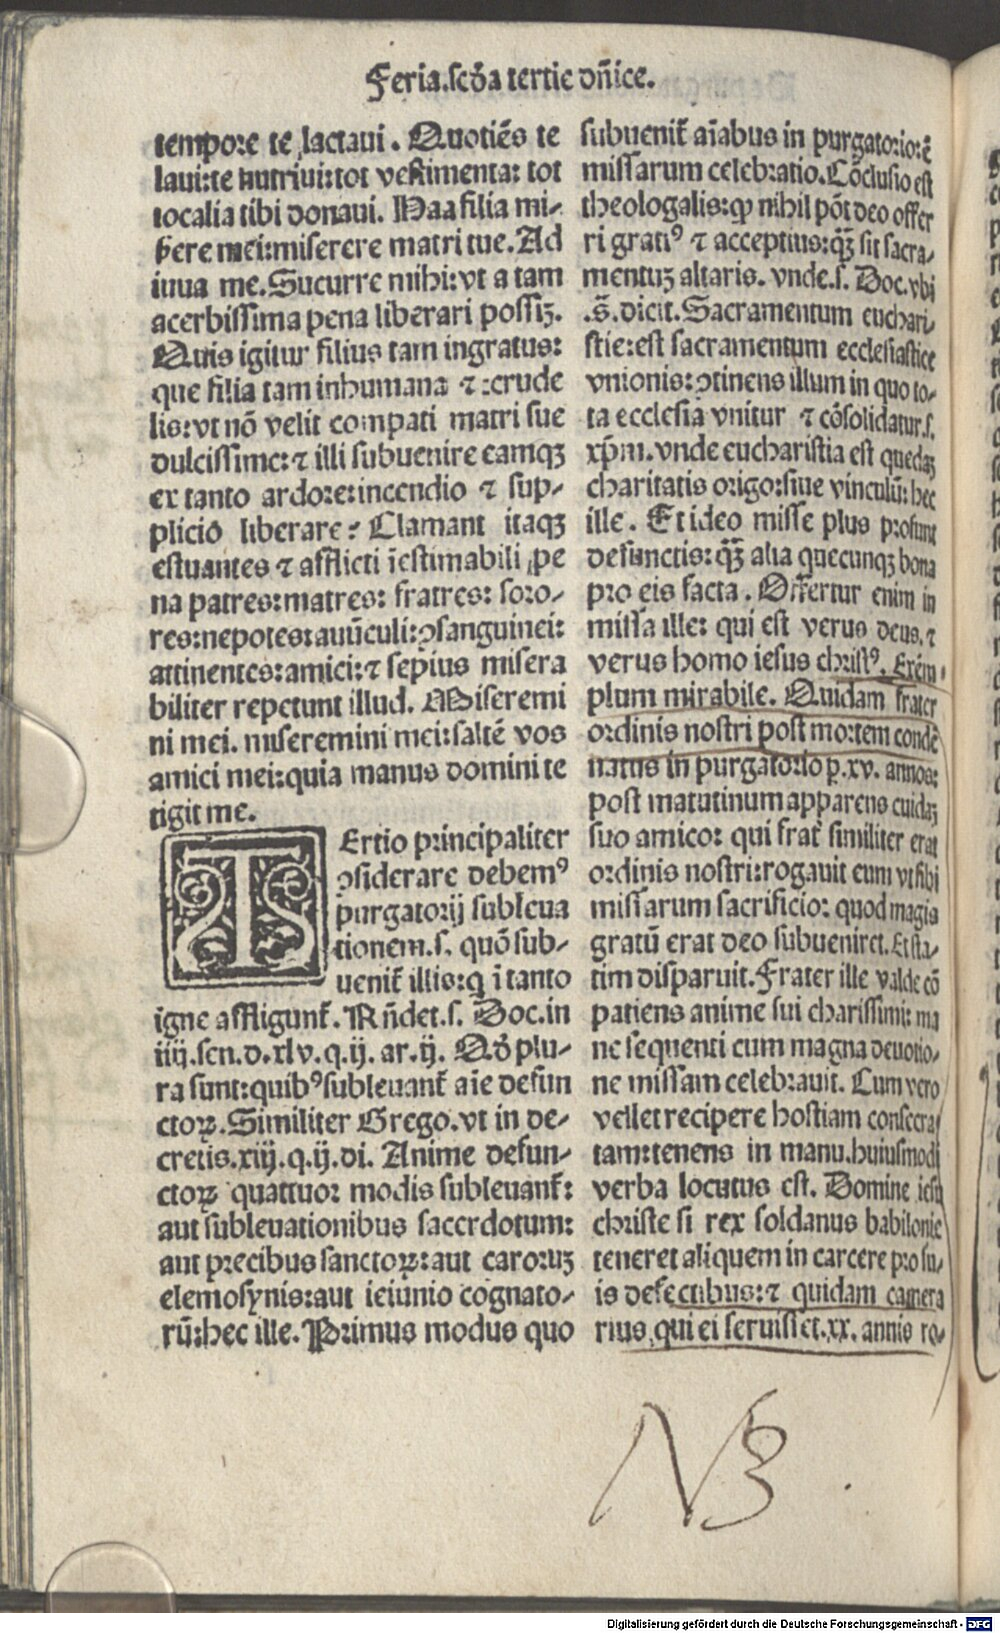 Feria.scđa tertie dñice.
tempore te lactaui. Quotiēs te
laui:te nutriui:tot vestimenta: tot
iocalia tibi donaui. Haa filia mi-
sere mei:miserere matri tue. Ad
iuua me. Sucurre mihi:vt a tam
acerbissima pena liberari possiꝫ.
Quis igitur filius tam ingratus:
que filia tam inhumana ⁊ :crude
lis:vt nō velit compati matri sue
dulcissime:⁊ illi subuenire eamqꝫ
ex tanto ardore:incendio ⁊ sup-
plicio liberare? Clamant itaqꝫ
estuantes ⁊ afflicti īestimabili pe
na patres:matres: fratres: soro-
res:nepotes:auūculi:ꝯsanguinei:
attinentes:amici:⁊ sepius misera
biliter repetunt illud. Miseremi
ni mei. miseremini mei:saltē vos
amici mei:quia manus domini te
tigit me.
TErtio principaliter
ꝯsiderare debemꝰ
purgatorij subleua
tionem.s. quō sub-
uenit̄ illis:q ī tanto
igne affligunt̄. Rñdet.s. Doc.in
iiij.sen.d.xlv.q.ij. ar.ij. Qđ plu-
ra sunt:quibꝰ subleuant̄ aīe defun
ctoꝝ. Similiter Grego.vt in de-
cretis.xiij.q.ij.di. Anime defun-
ctoꝝ quattuor modis subleuant̄:
aut subleuationibus sacerdotum:
aut precibus sanctoꝝ:aut caroruꝫ
elemosynis:aut ieiunio cognato-
rū:hec ille. Primus modus quo
subuenit̄ aīabus in purgatorio:ē
missarum celebratio. Cōclusio est
theologalis:ꝙ nihil pōt deo offer
ri gratiꝰ ⁊ acceptius:qꝫ̄ sit sacra-
mentuꝫ altaris. vnde.s. Doc.vbi
.s̄. dicit. Sacramentum euchari-
stie:est sacramentum ecclesiastice
vnionis:ꝯtinens illum in quo to-
ta ecclesia vnitur ⁊ cōsolidatur.s.
xp̄m. vnde eucharistia est quedaꝫ
charitatis origo:siue vinculū: hec
ille. Et ideo misse plus prosunt
defunctis:qꝫ̄ alia quecunqꝫ bona
pro eis facta. Offertur enim in
missa ille: qui est verus deus. ⁊
verus homo iesus christꝰ. Exēm-
plum mirabile. Quidam frater
ordinis nostri post mortem condē
natus in purgatorio p.xv. annos:
post matutinum apparens cuidaꝫ
suo amico: qui frat̄ similiter erat
ordinis nostri:rogauit eum vt sibi
missarum sacrificio: quod magis
gratū erat deo subueniret. Et sta-
tim disparuit. Frater ille valde cō
patiens anime sui charissimi: ma
ne sequenti cum magna deuotio-
ne missam celebrauit. Cum vero
vellet recipere hostiam consecra-
tam:tenens in manu.huiusmodi
verba locutus est. Domine iesu
christe si rex soldanus babilonie
teneret aliquem in carcere pro su-
is defectibus:⁊ quidam camera
rius qui ei seruisset.xx. annis ro-
NB
Digitalisierung gefördert durch die Deutsche Forschungsgemeinschaft - DFG